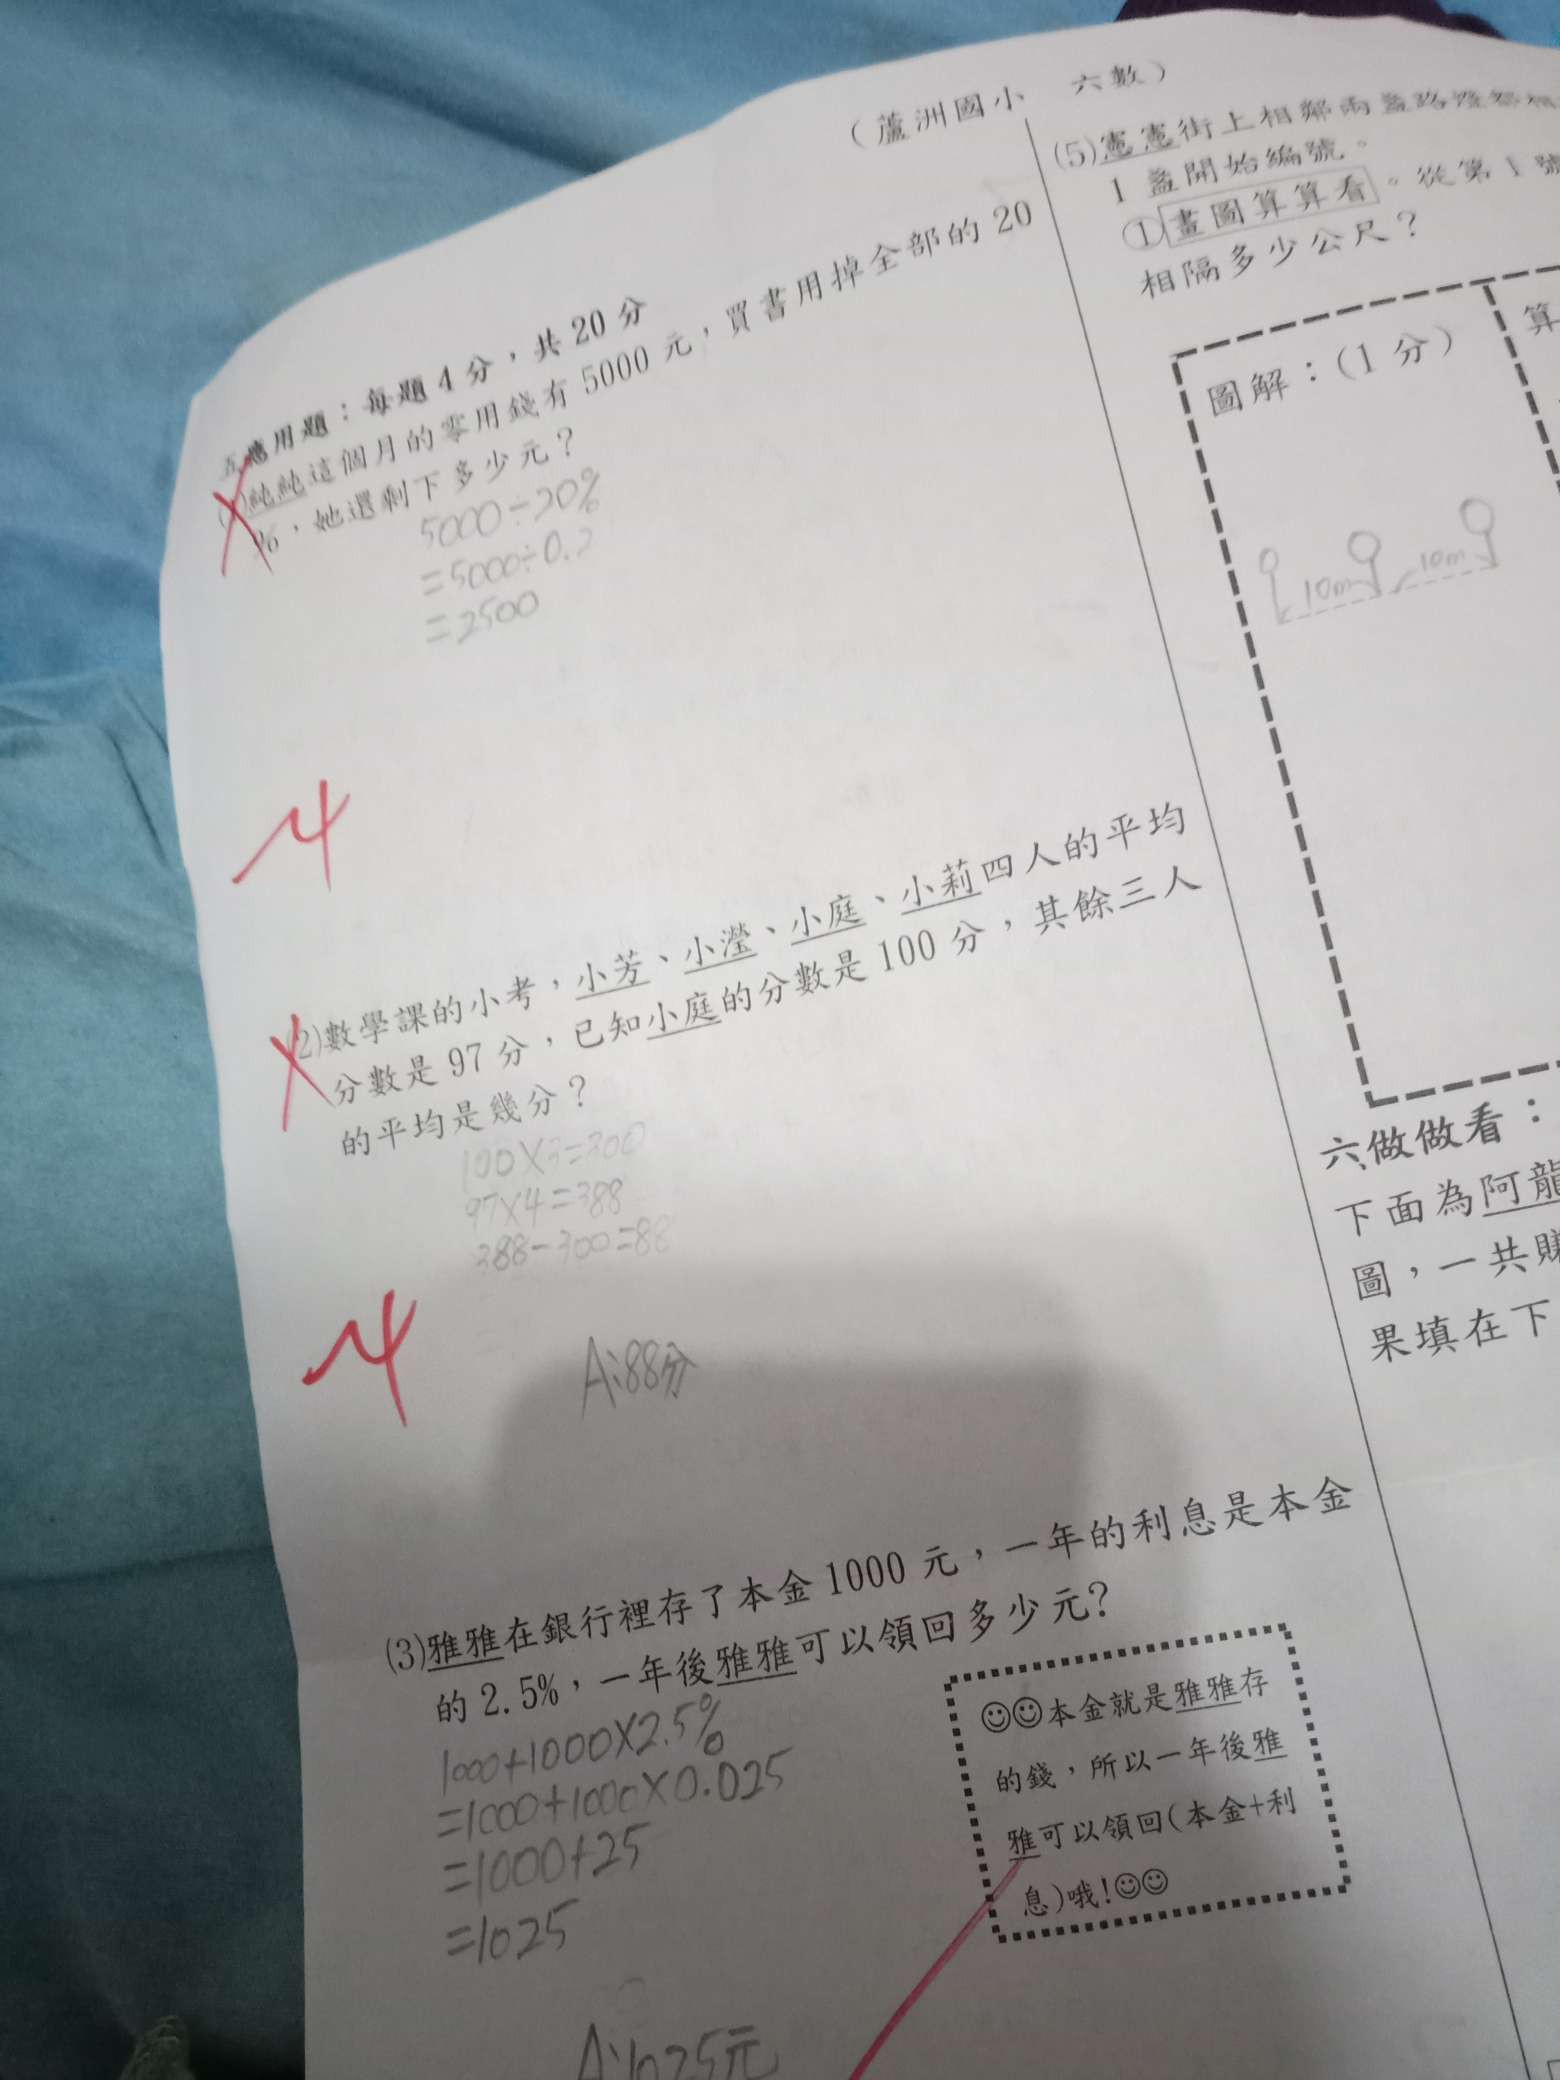 (蘆洲國小 六數)
五應用題：每題4分，共20分
純純這個月的零用錢有5000元，買書用掉全部的20
%，她還剩下多少元？
5000÷20%
=5000÷0.2
=2500
-4
(2)數學課的小考，小芳、小瀅、小庭、小莉四人的平均
分數是97分，已知小庭的分數是100分，其餘三人
的平均是幾分？
100×3=300
97×4=388
388-300=88
A:88分
-4
(3)雅雅在銀行裡存了本金1000元，一年的利息是本金
的2.5%，一年後雅雅可以領回多少元?
1000+1000×2.5%
=1000+1000×0.025
=1000+25
=1025
A:1025元
☺☺本金就是雅雅存
的錢，所以一年後雅
雅可以領回(本金+利
息)哦!☺☺
(5)憲憲街上相鄰兩盞路燈都相
1盞開始編號。
①畫圖算算看。從第1號
相隔多少公尺？
圖解：(1分)
算
10m 10m
六做做看：
下面為阿龍
圖，一共賺
果填在下